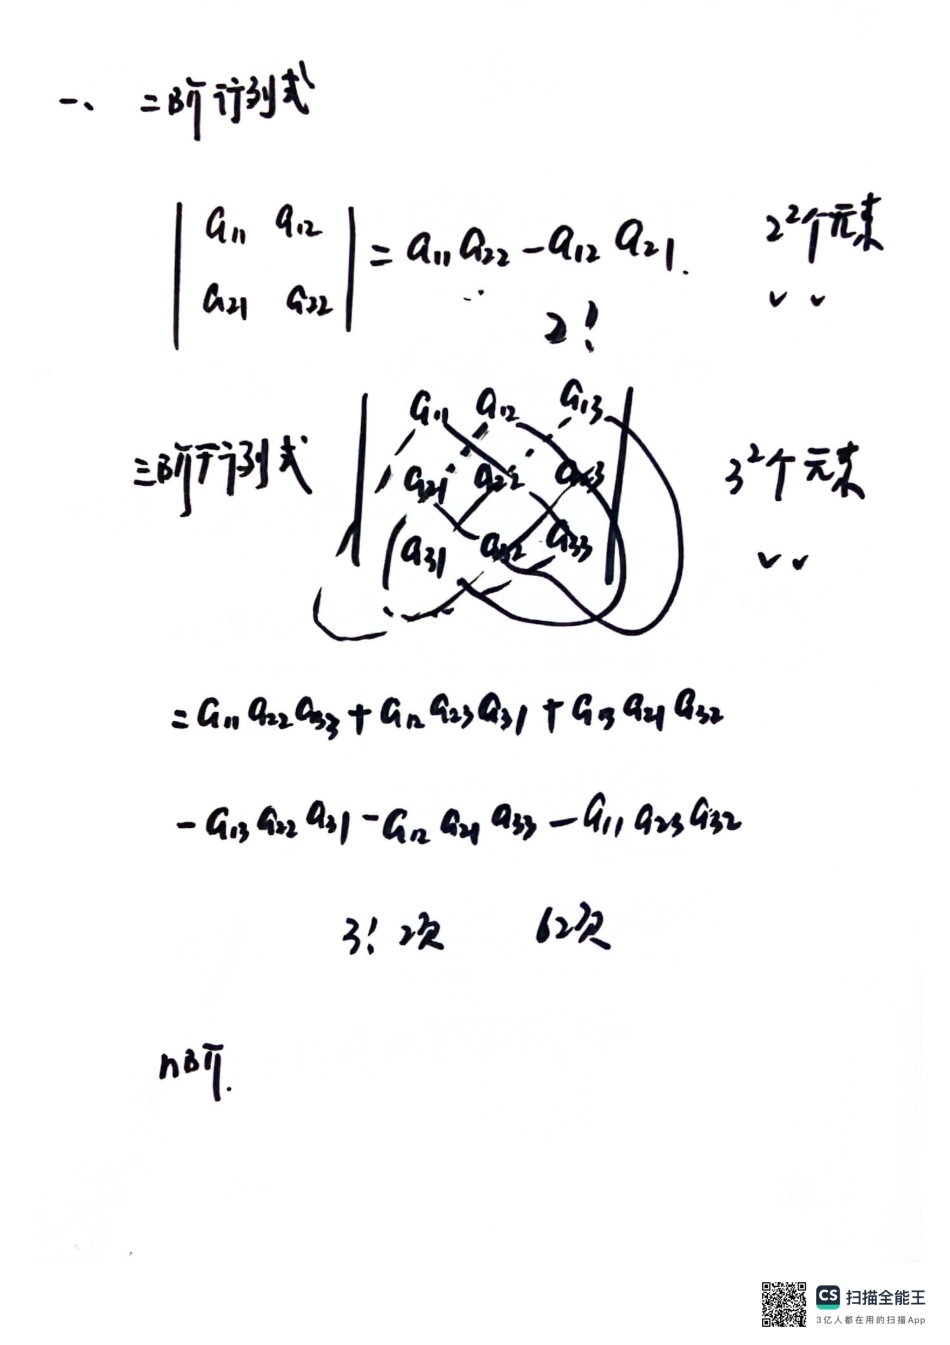 一、 二阶行列式
| a₁₁ a₁₂ | = a₁₁ a₂₂ − a₁₂ a₂₁. 2²个元素
| a₂₁ a₂₂ |
2!
三阶行列式 | a₁₁ a₁₂ a₁₃ | 3²个元素
| a₂₁ a₂₂ a₂₃ |
| a₃₁ a₃₂ a₃₃ |
= a₁₁ a₂₂ a₃₃ + a₁₂ a₂₃ a₃₁ + a₁₃ a₂₁ a₃₂
− a₁₃ a₂₂ a₃₁ − a₁₂ a₂₁ a₃₃ − a₁₁ a₂₃ a₃₂
3!
n阶.
CS 扫描全能王
3亿人都在用的扫描App